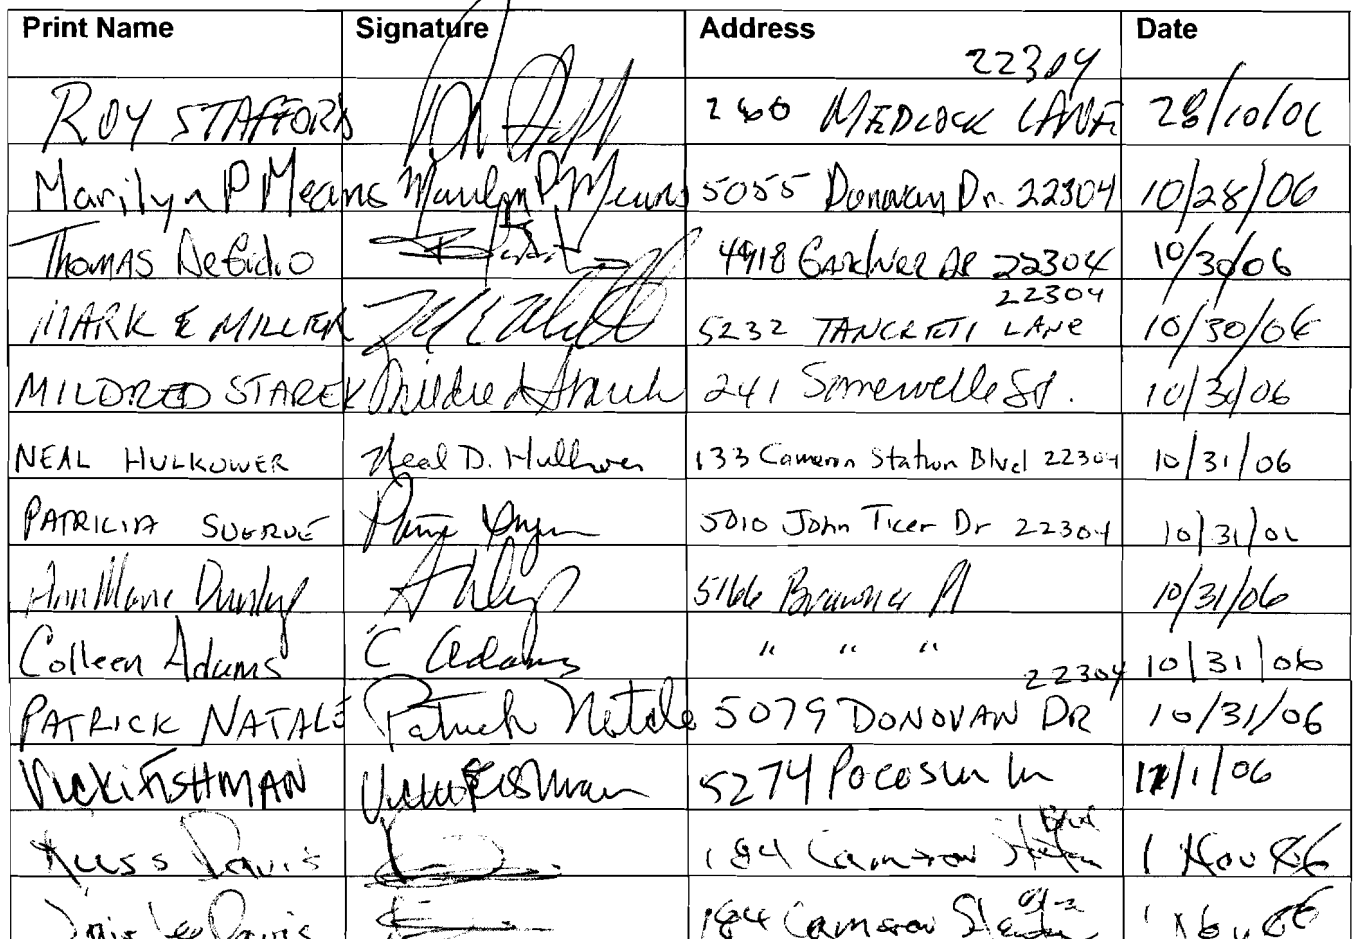 Print Name Signature Address Date
22304
ROY STAFFORD 260 MEDLOCK LANE 28/10/06
Marilyn P Means Marilyn P Means 5055 Donovan Dr. 22304 10/28/06
Thomas DeGidio 4918 GARDNER DR 22304 10/30/06
22304
MARK E MILLER 5232 TANCRETI LANE 10/30/06
MILDRED STAREK Mildred Starek 241 Somervelle St. 10/30/06
NEAL HULKOWER Neal D. Hulkower 133 Cameron Station Blvd 22304 10/31/06
PATRICIA SUGRUE 5010 John Ticer Dr 22304 10/31/06
AnnMarie Dunlap 5166 Brawner Pl 10/31/06
Colleen Adams C Adams " " " 10/31/06
22304
PATRICK NATALE Patrick Natale 5079 DONOVAN DR 10/31/06
VICKI FISHMAN Vicki Fishman 5274 Pocosin Ln 11/1/06
Blvd
Russ Davis 184 Cameron Station 1 Nov 06
Lee Davis 184 Cameron Station 1 Nov 06